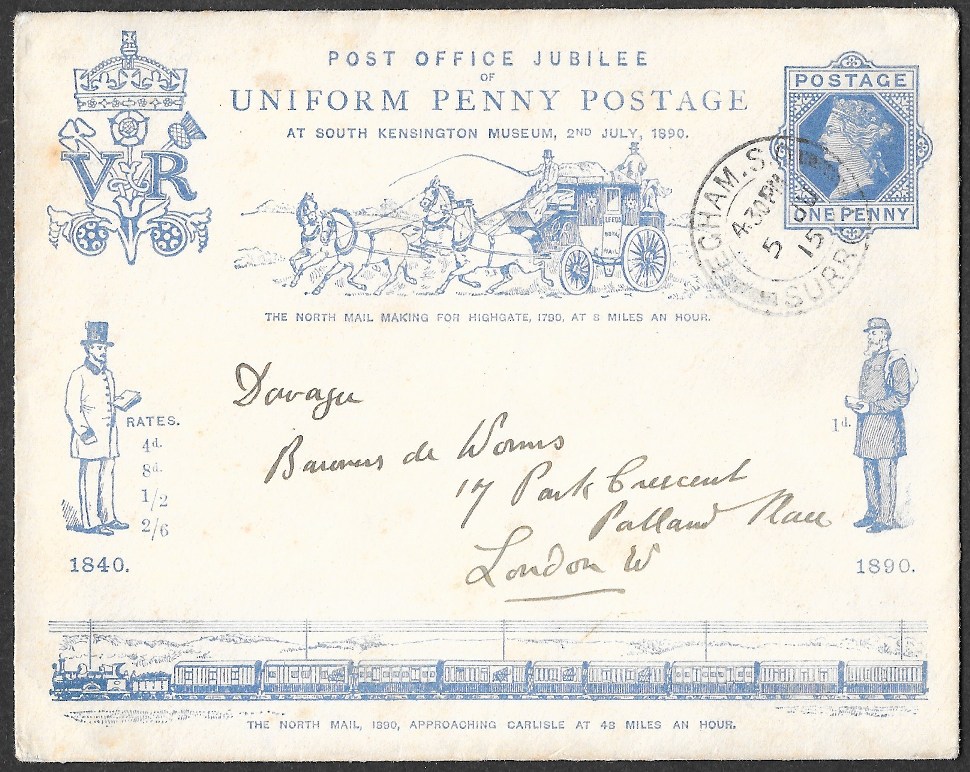 POST OFFICE JUBILEE
OF
UNIFORM PENNY POSTAGE
AT SOUTH KENSINGTON MUSEUM, 2ND JULY, 1890.
VR
POSTAGE
ONE PENNY
EGHAM. S.O.
4.30PM
5
15
SURR
LEEDS
ROYAL
MAIL
THE NORTH MAIL MAKING FOR HIGHGATE, 1790, AT 8 MILES AN HOUR.
RATES.
4d.
8d.
1/2
2/6
1840.
1d.
1890.
Dowager
Baroness de Worms
17 Park Crescent
Portland Place
London W
THE NORTH MAIL, 1890, APPROACHING CARLISLE AT 48 MILES AN HOUR.